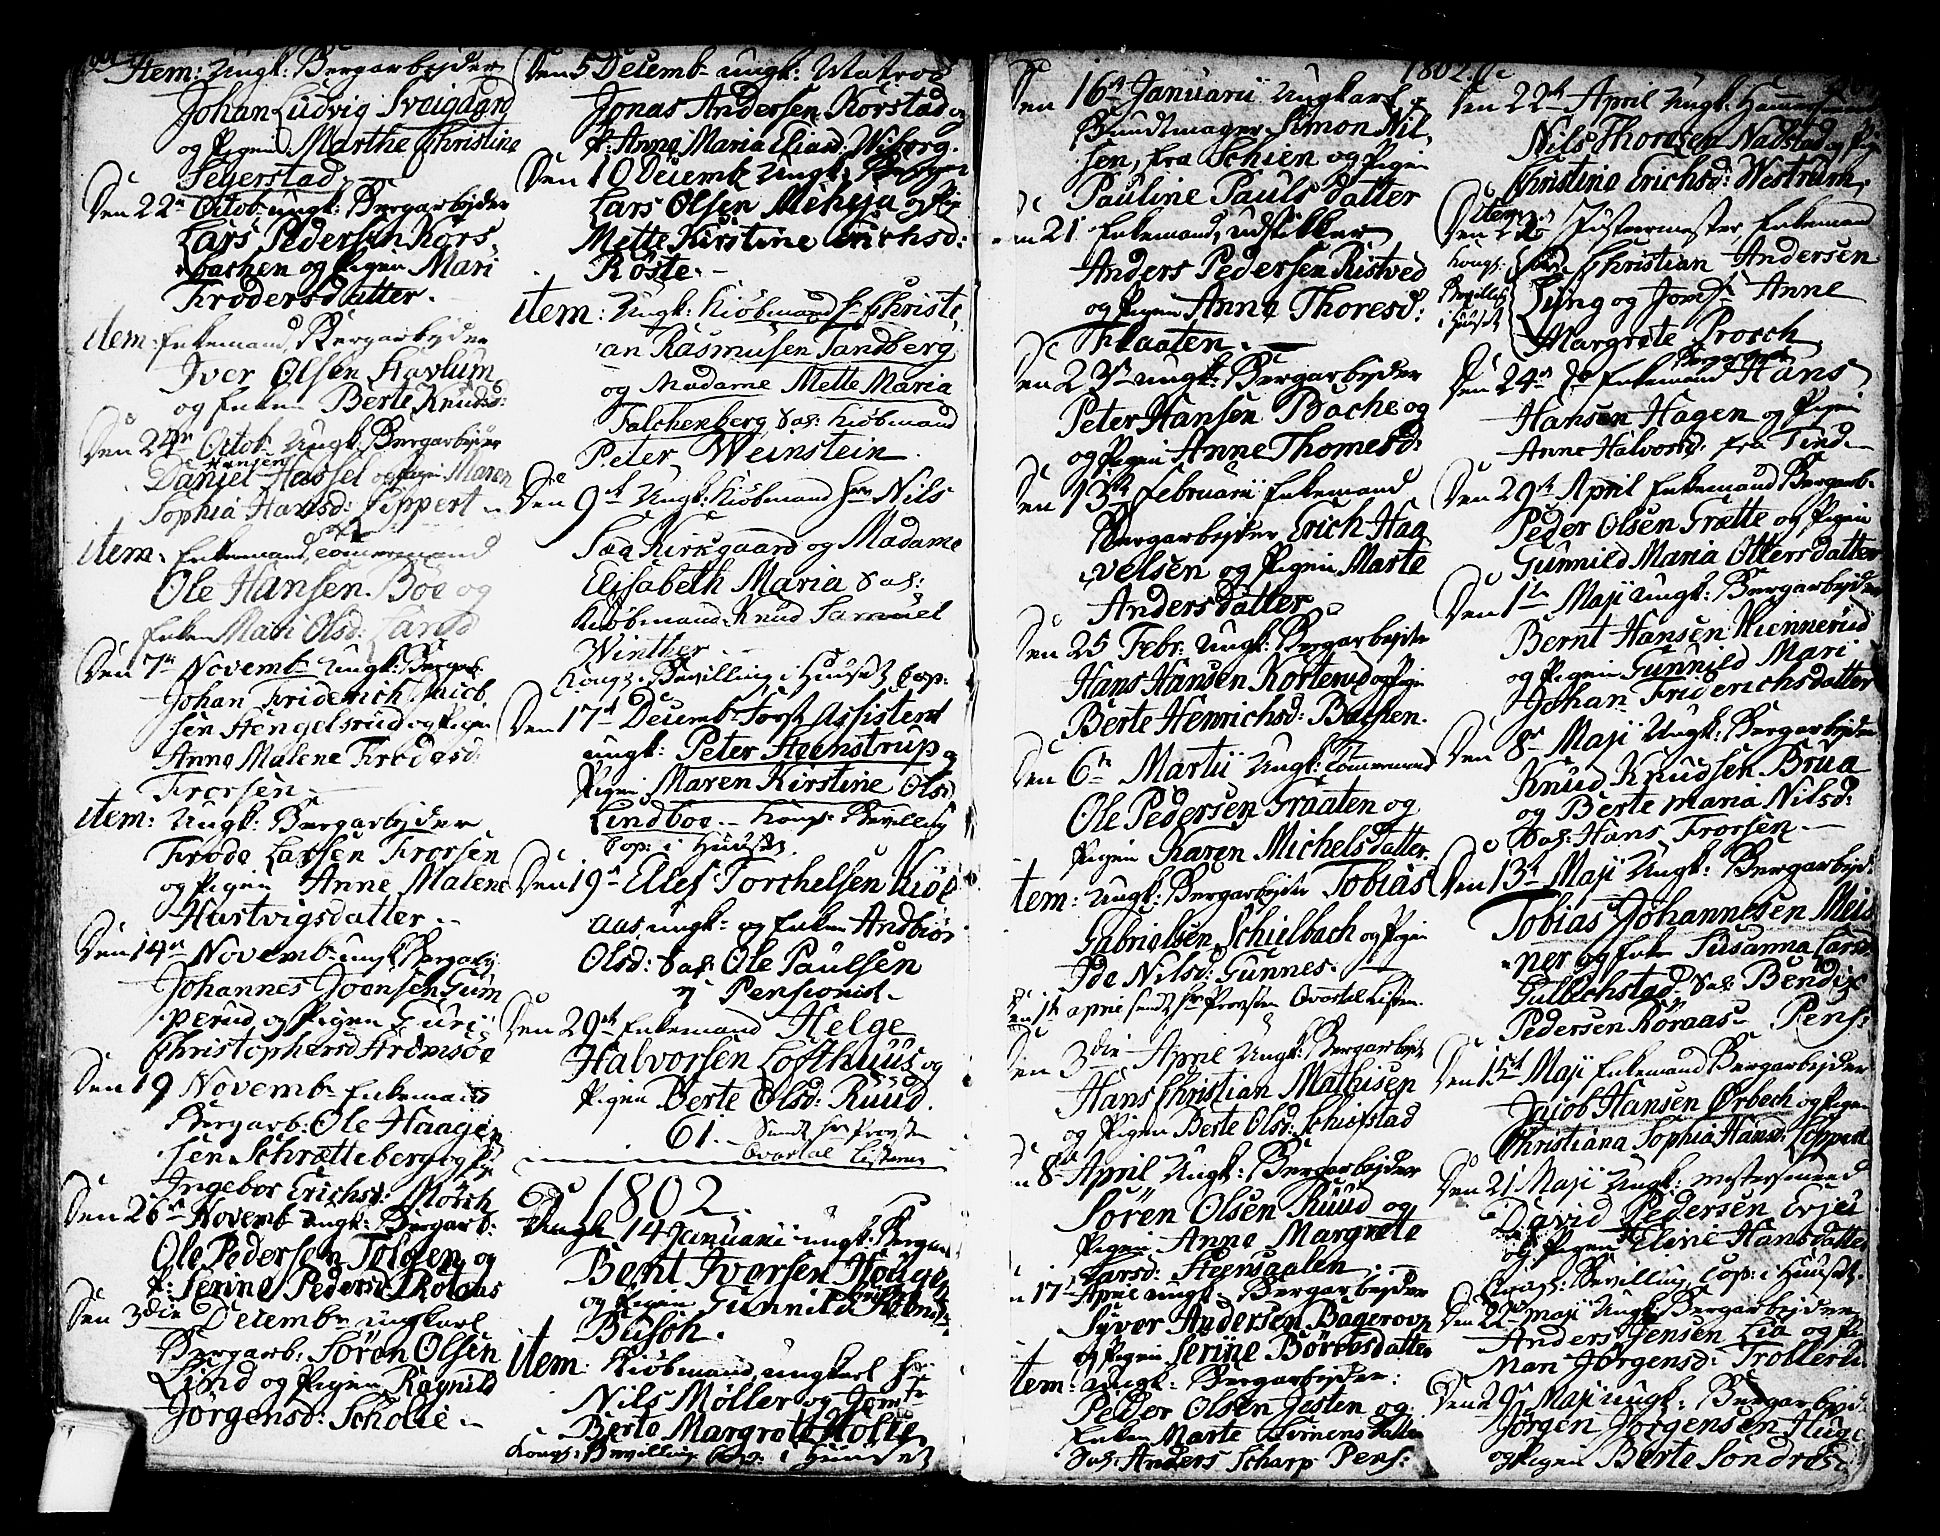 Item: Ungk: Bergarbejder
Johan Ludvig Svaigaard
og Pigen Marthe Christine
Segerstad.
Den 22n Octob. ungk: Bergarbejder
Lars Pedersen Kors-
bachen og Pigen Mari
Frodersdatter.
item: Enkemand, Bergarbejder
Iver Olsen Havlum
og Enken Berte Knudsd:
Den 24n Octob. Ungk: Bergarbejder
Daniel Hansen Hassel og Pigen Maren
Sophia Hansd: Lippert
item: Enkemand, Tømmermand
Ole Hansen Boe og
Enken Mari Olsd:
Den 7n Novemb. Ungk: Bergarb.
Johan Friderich Jacob
sen Hengelsrud og Pigen
Anne Malene Frodesd:
Frorsen
item: Ungk: Bergarbejder
Frode Larsen Frorsen
og Pigen Anne Malene
Hartvigsdatter.
Den 14n Novemb. ungk Bergarb:
Johannes Joensen Gum
perud og Pigen Guri
Christophersd Strømsøe
Den 19 Novemb. Enkemand
Bergarb: Ole Haagen
sen Schrætteberg og Pige
Ingebor Erichsd: Mørch
Den 26n Novemb. Ungk: Bergarb:
Ole Pedersen Tolgen og
P: Serine Pedersd
Den 3die Decemb. ungkarl
Bergarb: Søren Olsen
Lind og Pigen Ragnild
Jørgensd: Scholte
Den 5 Decemb. ungk: Matros
Jonas Andersen Korstad og
P: Anne Maria Eliasd: Wiborg.
Den 10 Decemb. Ungk: Berga
Lars Olsen Meheja og Pig
Mette Kirstine Erichsd:
Røste.
item: Ungk: Kiøbmand Hr Christi
an Rasmusen Sandberg
og Madame Mette Maria
Falchenberg, Sal: Kiøbmand
Peter Weinstein
Den 9de Ungk: Kiøbmand Hr Nils
Kirkgaard og Madame
Elisabeth Maria Sal:
Kiøbmand Knud Samuel
Winther.
Kongs: Bevilling i Huuset Cop:
Den 17d Decemb. Forst Assistent
ungk: Peter Steenstrup og
Pigen Maren Kirstine Olsd
Lindboe. Kongs: Bevilling
Cop: i Huuset.
Den 19n Elles Torchelsen Kiøl
aas ungk: og Enken Andbiør
Olsd: Sal: Ole Paulsen
Pensionist
Den 29de Enkemand Helge
Halvorsen Lofthuus og
Pigen Berte Olsd: Ruud.
61. Sendt Hr Provsten
Qvartal Listerne
1802.
14 Januarii ungk: Bergar
Bent Iversen Houge
og Pigen Gunnild
Busch.
item: Kiøbmand, ungkarl Hr
Nils Møller og Jomfr
Berte Margrete Holte
Kongs: Bevilling Cop: i Huuset
1802.
Den 16d Januarii Ungkarl,
Bundtmager Simon Nil
sen, fra Schien og Pigen
Pauline Pauls datter
Den 21 Enkemand, udstikker
Anders Pedersen Ristved
og Pigen Anne Thoresd:
Flaaten.
Den 23n ungk: Bergarbejder
Peter Hansen Bache og
og Pigen Anne Thomesd:
Den 13de Februarii Enkemand
Bergarbejder Erich Haa
velsen og Pigen Marte
Andersdatter.
Den 25 Febr: Ungk: Bergarbejder
Hans Hansen Korterud og Pigen
Berte Henrichsd: Bachen.
Den 6te Martii Ungk: Tømmermand
Ole Pedersen Graaten og
Pigen Karen Michelsdatter.
Item: Ungk: Bergarbejder Tobias
Gabrielsen Schielbach og Pigen
Ide Nilsd: Gunnes.
Den 1te april sendt Hr Provsten Qvartal Listen.
Den 3die April Ungk: Bergarbejder
Hans Christian Mathisen
og Pigen Berte Olsd: Schiefstad
Den 8de April Ungk: Bergarbejder
Søren Olsen Ruud og
Pigen Anne Margrete
Larsd: Steensaalen.
Den 17d April ungk: Bergarbejder
Syver Andersen Bagerovn
og Pigen Serine Børresdatter
Item: Ungk: Bergarbejder:
Peder Olsen Jesten og
Enken Marte Simensdatter
Sal: Anders Scharp Pens:
Den 22de April Ungk: Hammersmed
Nils Thorsen Nadstad og Pige
Christine Erichsd: Westrum
item
Den Enkemand
Kongs: Bevilling i Huuset
Christian Andersen
Ljung og Jomfr Anne
Margrete Prosch
Den 24n do Enkemand Bergarbejder Hans
Hansen Hagen og Pigen
Anne Halvorsd: fra Tind
Den 29d April Enkemand Bergarb.
Peder Olsen Grætte og Pigen
Gunnild Maria Ottersdatter
Den 1te Maji Ungk: Bergarbejder
Bernt Hansen Hiennerud
og Pigen Gunnild Mari
Johan Friderichsdatter
Den 8n Maji Ungk: Bergarbejder
Knud Knudsen Brua
og Berte Maria Nilsd:
Sal: Hans Frorsen.
Den 13d Maji Ungk: Bergarbejd:
Tobias Johannesen Meis
ner og Enke Susanna Larsd:
Gulbechstad. Sal: Bendix
Pedersen Roraas Pens:
Den 15d Maji Enkemand Bergarbejder
Jacob Hansen Ørbech og Pigen
Christiana Sophia Hansd: Lippert
Den 21 Maji Ungk: mestersmed
David Pedersen
og Pigen Eline Hansdatter
Kongs: Bevilling, Cop: i Huuset.
Den 22de maji Ungk: Bergarbejder
Anders Jensen Lia og Pi
Mari Jørgensd: Trollerud
Den 29n Maji ungk: Bergarbejd:
Jørgen Jørgensen Huge
og Pigen Berte Sondresd: